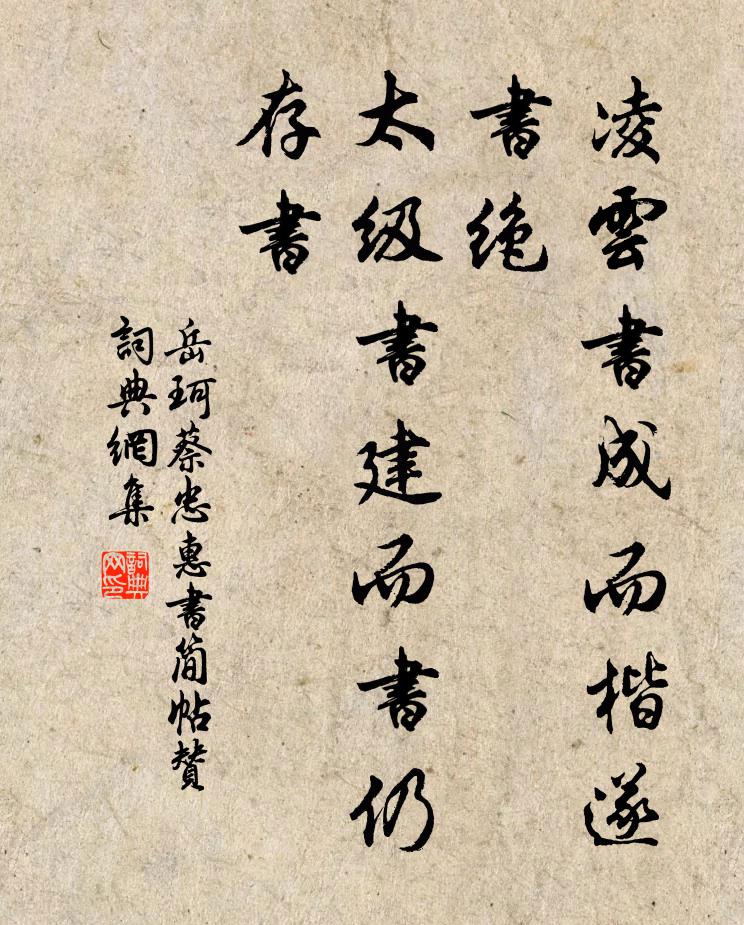 凌雲書成而楷遂
書絶
太級書建而書仍
存書
岳珂蔡忠惠書簡帖贊
詞典網集
詞典网印